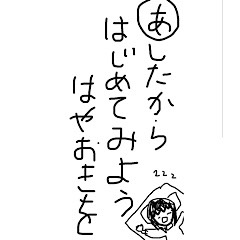 あしたから
はじめてみよう
はやおきをと
zzz